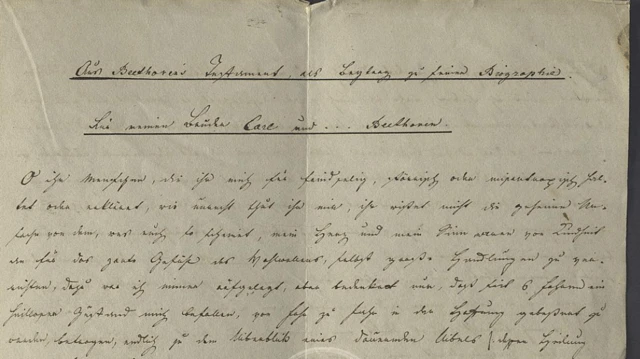 Aus Beethovens Testament, als Beytrag zu seiner Biographie.
Für meinen Bruder Carl und ... Beethoven.
O ihr Menschen, die ihr mich für feindselig, störrisch oder misantropisch hal-
tet oder erkläret, wie unrecht thut ihr mir, ihr wisset nicht die geheime Ur-
sache von dem, was euch so scheinet, mein Herz und mein Sinn waren von Kindheit
an für das zarte Gefühl des Wohlwollens, selbst große Handlungen zu ver-
richten, dazu war ich immer aufgelegt, aber bedenket nur, daß seit 6 Jahren ein
heilloser Zustand mich befallen, von Jahr zu Jahr in der Hoffnung gebessert zu
werden, betrogen, endlich zu dem Überblick eines dauernden Übels (deßen Heilung